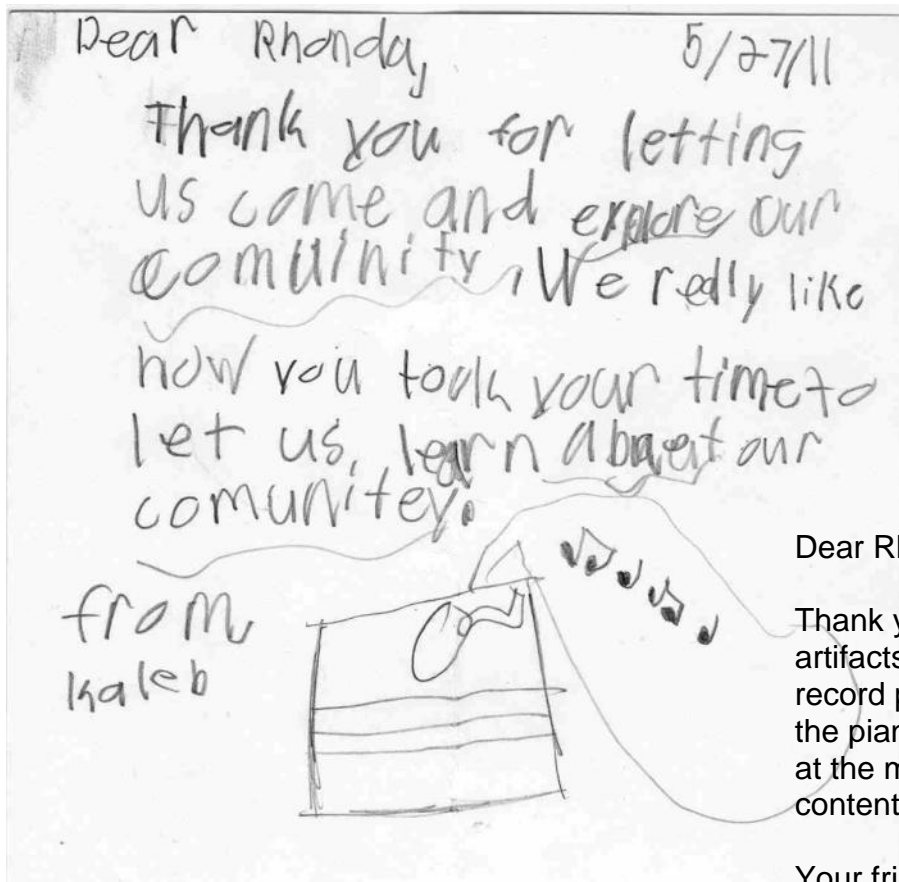 Dear Rhonda, 5/27/11
Thank you for letting
us come and explore our
comuinity. We really like
how you took your time to
let us, learn about our
comunitey.
from
Kaleb
Dear
Thank
artifacts
record
the
at the
content
Your